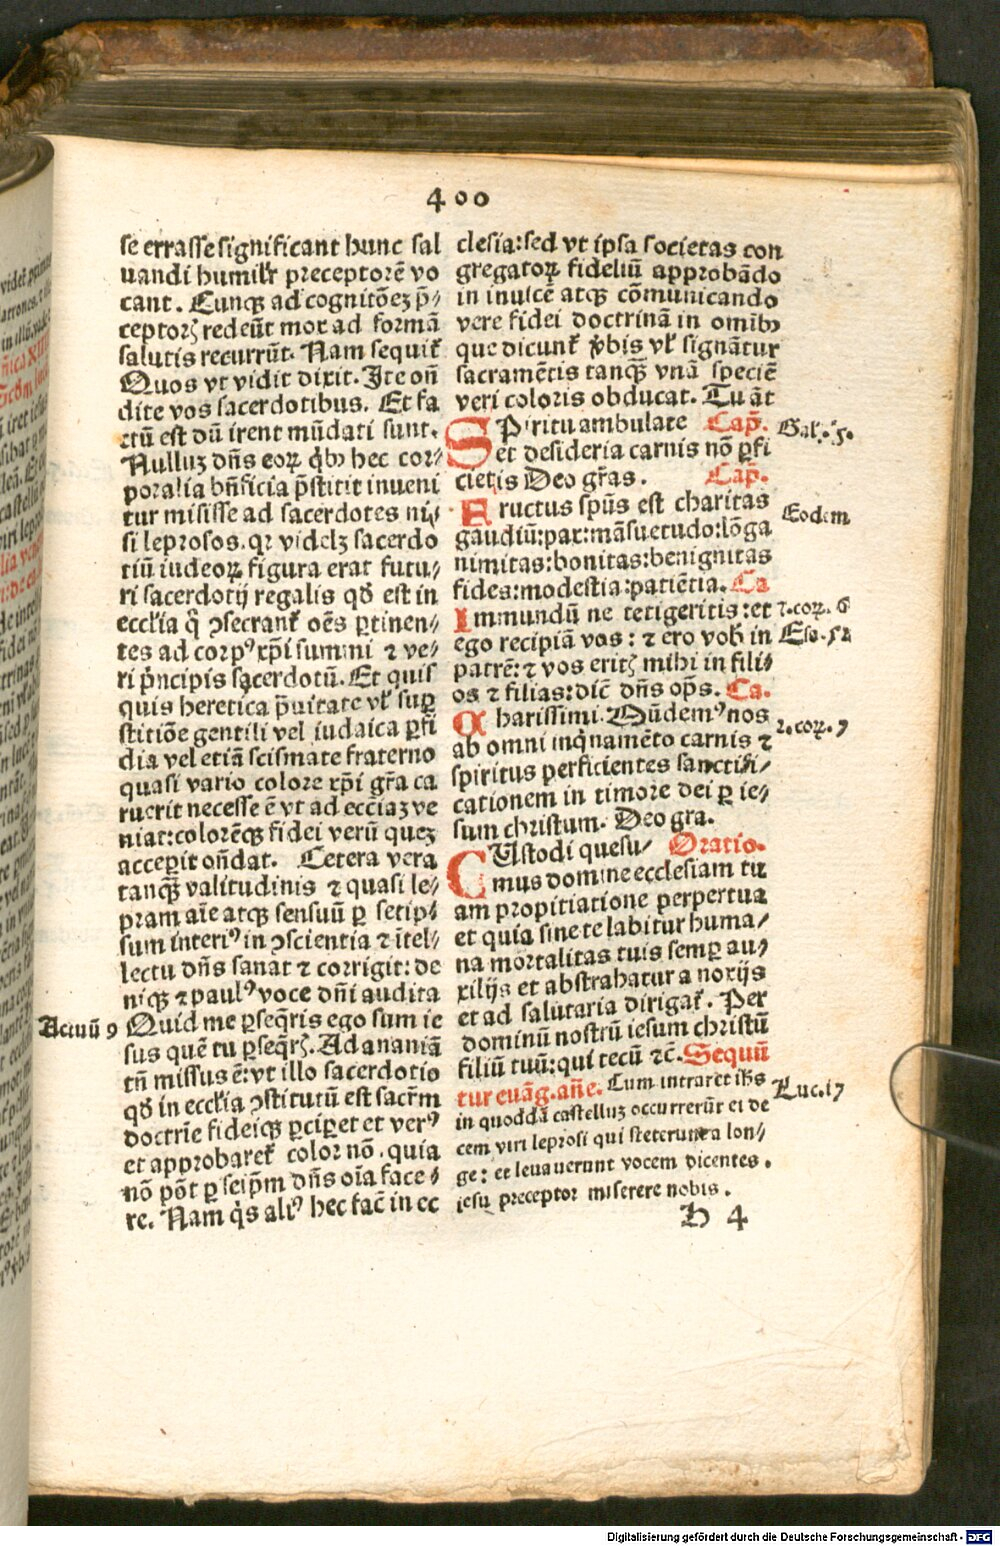 400
se errasse significant hunc sal
uandi humilr̄ preceptorē vo
cant. Cunqꝫ ad cognitōeꝫ p̄-
ceptorꝭ redeūt mox ad formā
salutis recurrūt. Nam sequit᷑
Quos vt vidit dixit. Ite oñ
dite vos sacerdotibus. Et fa
ctū est dū irent mūdati sunt.
Nulluꝫ dn̄s eoꝝ q̇bꝰ hec cor-
poralia bn̄ficia p̄stitit inueni
tur misisse ad sacerdotes ni-
si leprosos. qꝛ videlꝫ sacerdo
tiū iudeoꝝ figura erat futu-
ri sacerdotij regalis qđ est in
eccľia q̄ ꝯsecrant᷑ oēs ꝑtinen-
tes ad corpꝰ xp̄i summi ⁊ ve-
ri pͥncipis sacerdotū. Et quis
quis heretica pͣuitate vľ suꝑ
stitiōe gentili vel iudaica ꝑfi
dia vel etiā scismate fraterno
quasi vario colore xp̄i gr̄a ca
ruerit necesse ē vt ad eccīaꝫ ve
niat: colorēqꝫ fidei verū queꝫ
acceperit on̄dat. Cetera vera
tanqꝫ̄ valitudinis ⁊ quasi le-
pram aīe atqꝫ sensuū ꝑ seip-
sum interiꝰ in ꝯscientia ⁊ ītel-
lectu dn̄s sanat ⁊ corrigit: de
niqꝫ ⁊ paulꝰ voce dn̄i audita
Actuū 9
Quid me ꝑseq̄ris ego sum ie
sus quē tu ꝑseq̄rꝭ. Ad ananiā
tn̄ missus ē: vt illo sacerdotio
qđ in eccľia ꝯstitutū est sacr̄m
doctrīe fideiqꝫ ꝑciꝑet et verꝰ
et approbaret᷑ color nō. quia
nō pōt ꝑ seip̄m dn̄s oīa face-
re. Nam q̇s aliꝰ hec fac̄ in ec
clesia: sed vt ipsa societas con
gregatoꝝ fideliū approbādo
in inuicē atqꝫ cōmunicando
vere fidei doctrinā in omībꝰ
que dicunt᷑ v̓bis vľ signātur
sacramētis tanqꝫ̄ vnā speciē
veri coloris obducat. Tu āt
Spiritu ambulate Cap̄.
Gal. 5.
et desideria carnis nō ꝑfi
cietis Deo gr̄as. Cap̄.
Fructus spūs est charitas
Eodem
gaudiū: pax: māsuetudo: lōga
nimitas: bonitas: benignitas
fides: modestia: patiētia. Ca
Immundū ne tetigeritis: et
2. coꝝ. 6
ego recipiā vos: ⁊ ero vob̄ in
Esa. 52
patrē: ⁊ vos eritꝭ mihi in fili-
os ⁊ filias: dic̄ dn̄s op̄s. Ca.
Charissimi. Mūdemꝰ nos
2. coꝝ. 7
ab omni inq̇namēto carnis ⁊
spiritus perficientes sanctifi-
cationem in timore dei ꝑ ie-
sum christum. Deo gra.
CUstodi quesu- Oratio.
mus domine ecclesiam tu
am propitiatione perpetua
et quia sine te labitur huma-
na mortalitas tuis semꝑ au-
xilijs et abstrahatur a noxijs
et ad salutaria dirigat᷑. Per
dominū nostrū iesum christū
filiū tuū: qui tecū ⁊c̄. Sequū
tur euāg. añe. Cum intraret ihs
Luc. 17
in quoddā castelluꝫ occurrerūt ei de
cem viri leprosi qui steterunt a lon-
ge: et leuauerunt vocem dicentes.
iesu preceptor miserere nobis.
H 4
Digitalisierung gefördert durch die Deutsche Forschungsgemeinschaft - DFG